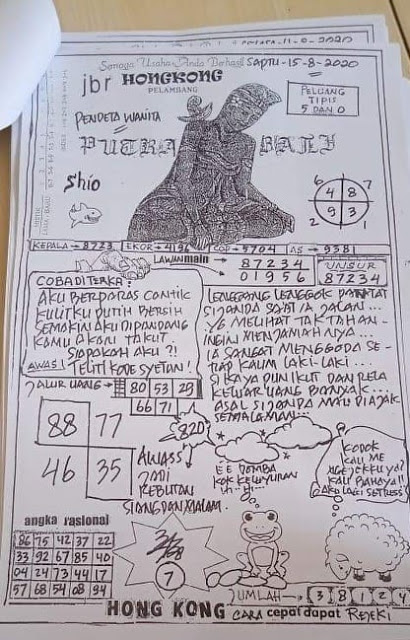 Semoga Usaha Anda Berhasil SAPTU-15-8-2020
jbr HONGKONG
PELAMBANG
PELUANG
TIPIS
5 AND 0
PENDETA WANITA
PUTRA BALI
Shio
6 4 8 7
2 9 3 1
KEPALA → 8723 EKOR → 4196 COP → 5704 AS → 9381
LAWAN main → 87234
01956
UNSUR
87234
COBA DITERKA:
AKU BERPARAS CANTIK
KULITKU PUTIH BERSIH
SEMAKIN AKU DIPANDANG
KAMU AKAN TAKUT
SIAPAKAH AKU ?!
AWAS! TELITI KODE SYETAN!
LENGGANG LENGGOK PANTAT
SIJANDA SAAT IA JALAN...
YG MELIHAT TAK TAHAN-
INGIN MENJAMAHNYA...
IA SANGAT MENGGODA SE-
TIAP KAUM LAKI-LAKI...
SI KAYA PUN IKUT DAN RELA
KELUAR UANG BANYAK...
ASAL SIJANDA MAU DIAJAK
SEMALAMAN...
JALUR UANG: 80 53 29
66 71
88 77
46 35
820
AWASS
JADI
REBUTAN
SIANG DAN MALAM.
EE DOMBA
KOK KELUYURAN
KODOK
KAU ME
NGEJEKKU YA?
KAU BAHAYA!!
AKU LAGI SETRESS!
angka rasional
86 75 42 37 22
33 92 67 85 40
04 24 73 44 17
57 68 54 08 94
7
JUMLAH → 3 8 1 2 4
HONG KONG CARA cepat dapat REJEKI